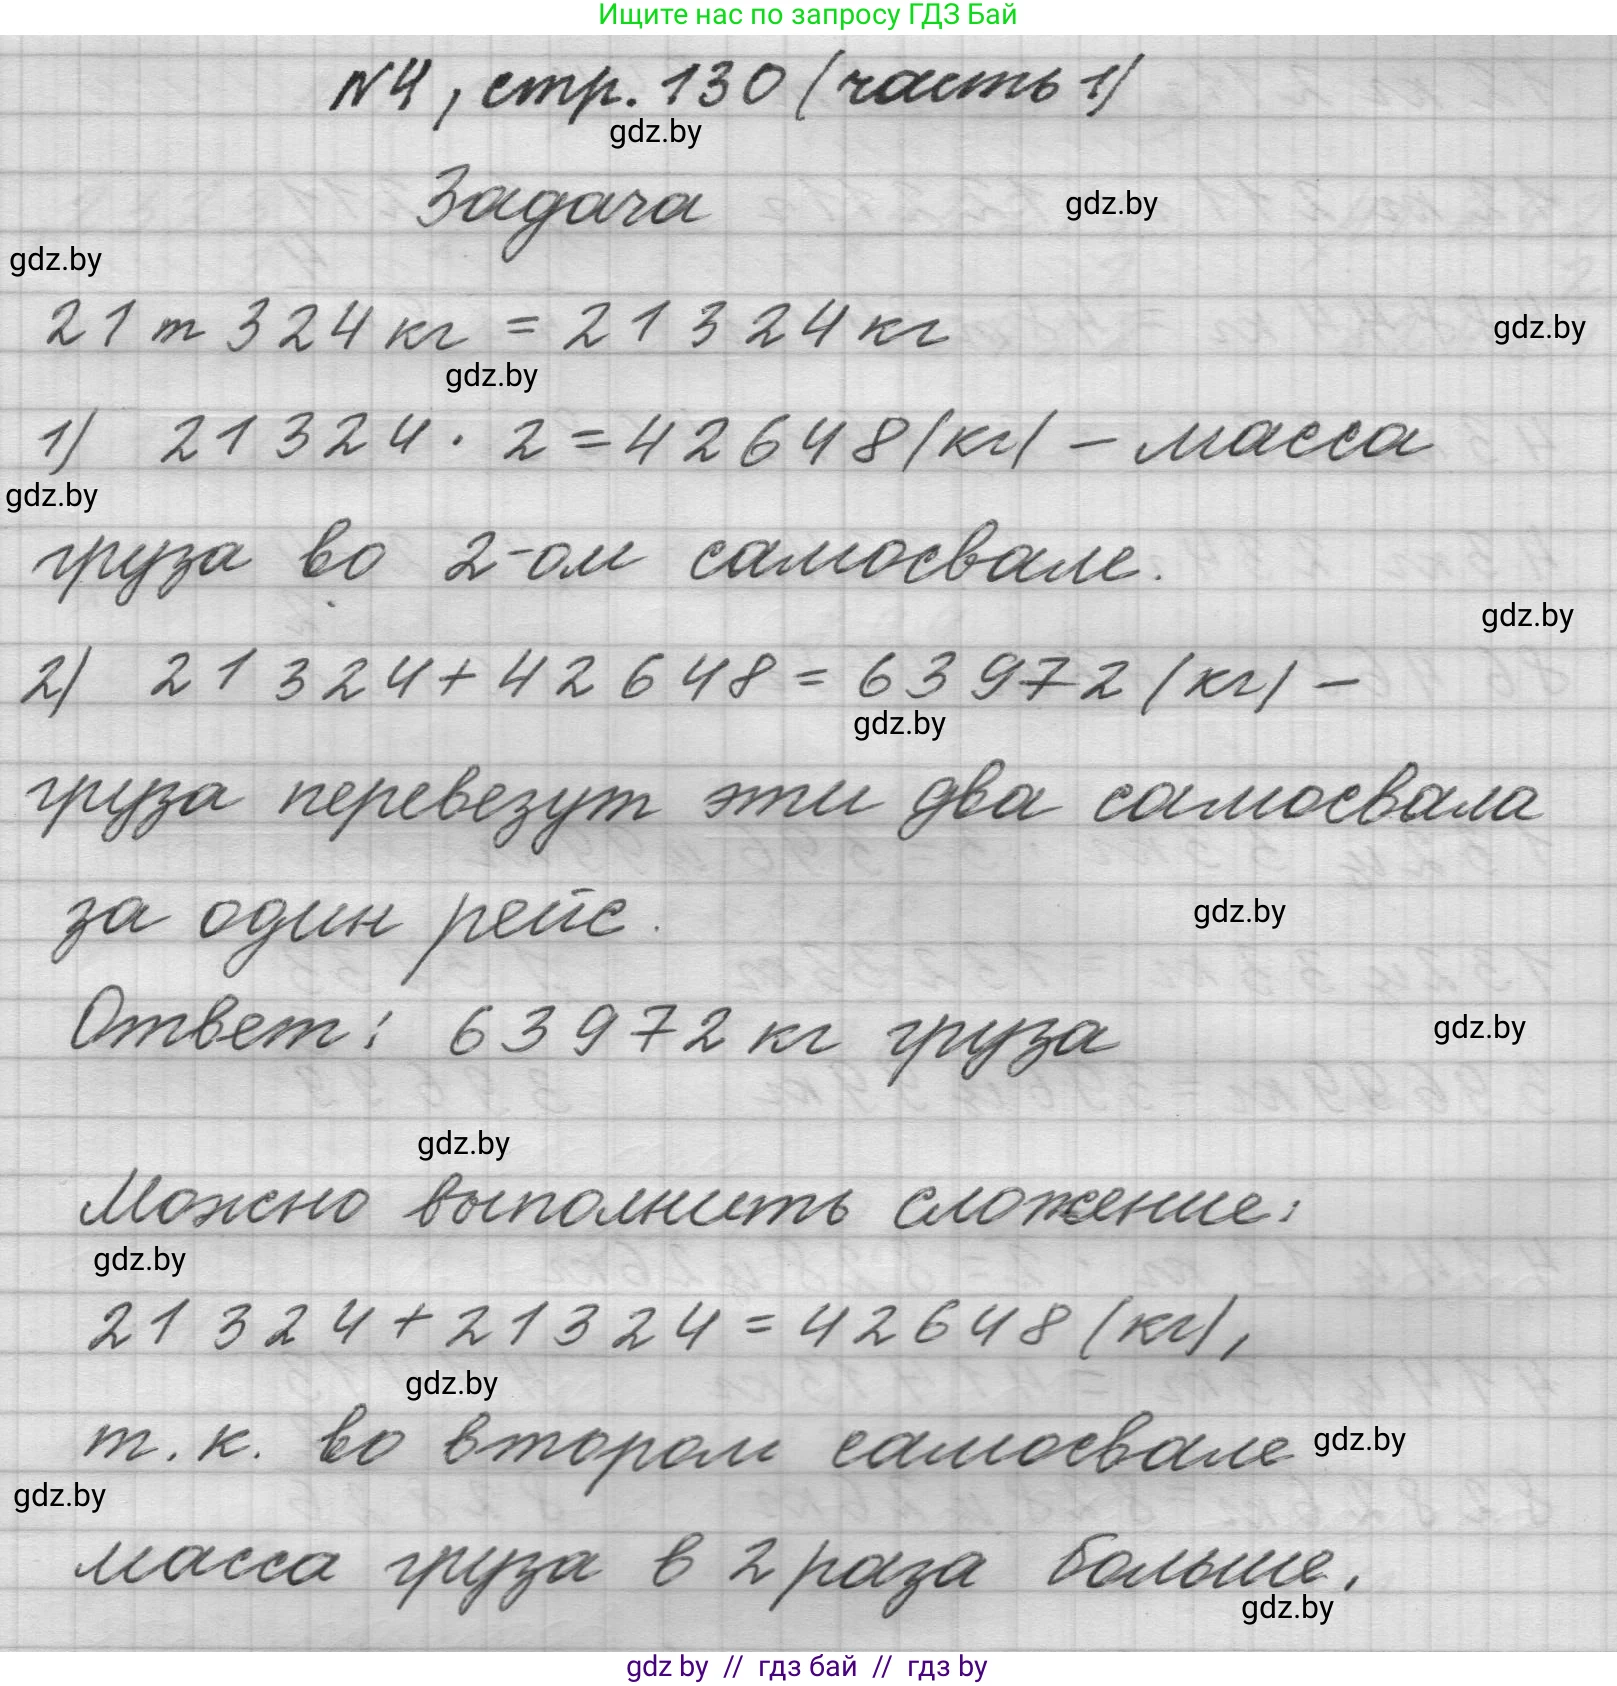 Ищите нас по запросу ГДЗ Бай
№4, стр. 130 (часть 1)
gdz.by
Задача
gdz.by
gdz.by
21 т 324 кг = 21 324 кг
gdz.by
gdz.by
1) 21 324 · 2 = 42 648 (кг) – масса
gdz.by
груза во 2-ом самосвале.
gdz.by
2) 21 324 + 42 648 = 63 972 (кг) –
gdz.by
груза перевезут эти два самосвала
за один рейс.
gdz.by
Ответ: 63 972 кг груза
gdz.by
gdz.by
Можно выполнить сложение:
gdz.by
21 324 + 21 324 = 42 648 (кг),
gdz.by
т. к. во втором самосвале
gdz.by
gdz.by
масса груза в 2 раза больше.
gdz.by
gdz by // гдз бай // гдз by